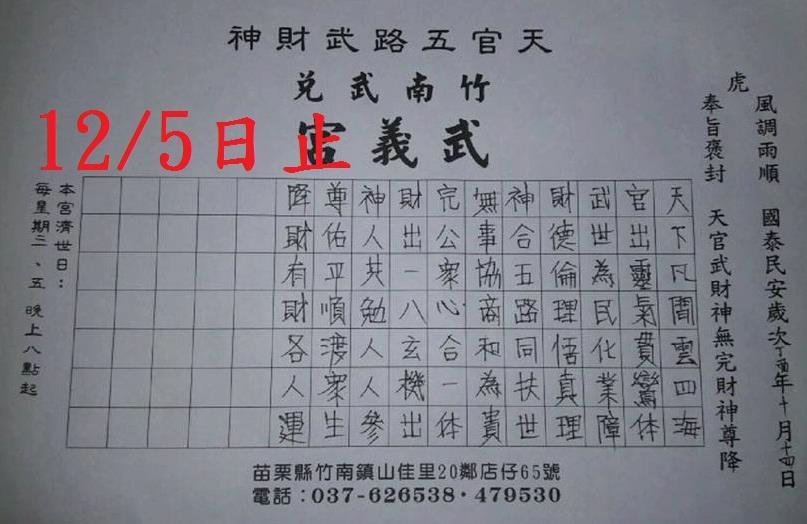 天官五路武財神
竹南武兌
武義宮
12/5日止
虎
風調雨順 國泰民安歲次丁酉年十月十四日
奉旨褒封 天官武財神無完財神尊降
天下凡間雲四海
官出靈氣貫鸞体
武世為民化業障
財德倫理悟真理
神合五路同扶世
無事協商和為貴
完公眾心合一体
財出一八玄機出
神人共勉人人參
尊佑平順渡眾生
降財有財各人運
本宮濟世日：
每星期三、五 晚上八點起
苗栗縣竹南鎮山佳里20鄰店仔65號
電話：037-626538·479530